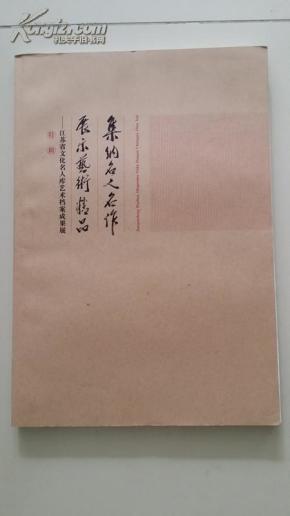 集纳名人名作
展示藝術精品
——江苏省文化名人库艺术档案成果展
特辑
孔夫子旧书网